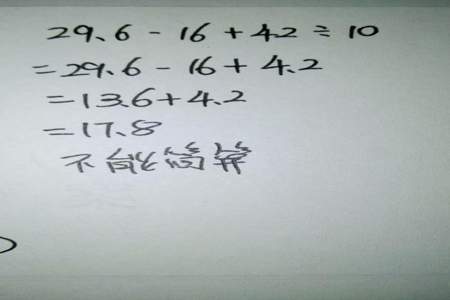 29.6 - 16 + 42 ÷ 10
= 29.6 - 16 + 4.2
= 13.6 + 4.2
= 17.8
不能简算